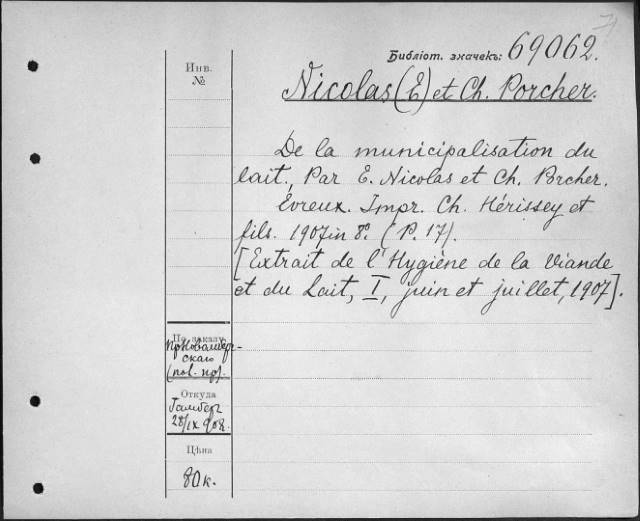 Библіот. значекъ: 69062.
Инв.
№
Nicolas (E) et Ch. Porcher.
De la municipalisation du
lait., Par E. Nicolas et Ch. Porcher.
Evreux. Impr. Ch. Hérissey et
fils. 1907 in 8º. (P. 17).
[Extrait de l'Hygiène de la Viande
et du Lait, I, juin et juillet, 1907].
По заказу
скаго
Откуда
28/IX 908.
Цѣна
80 к.